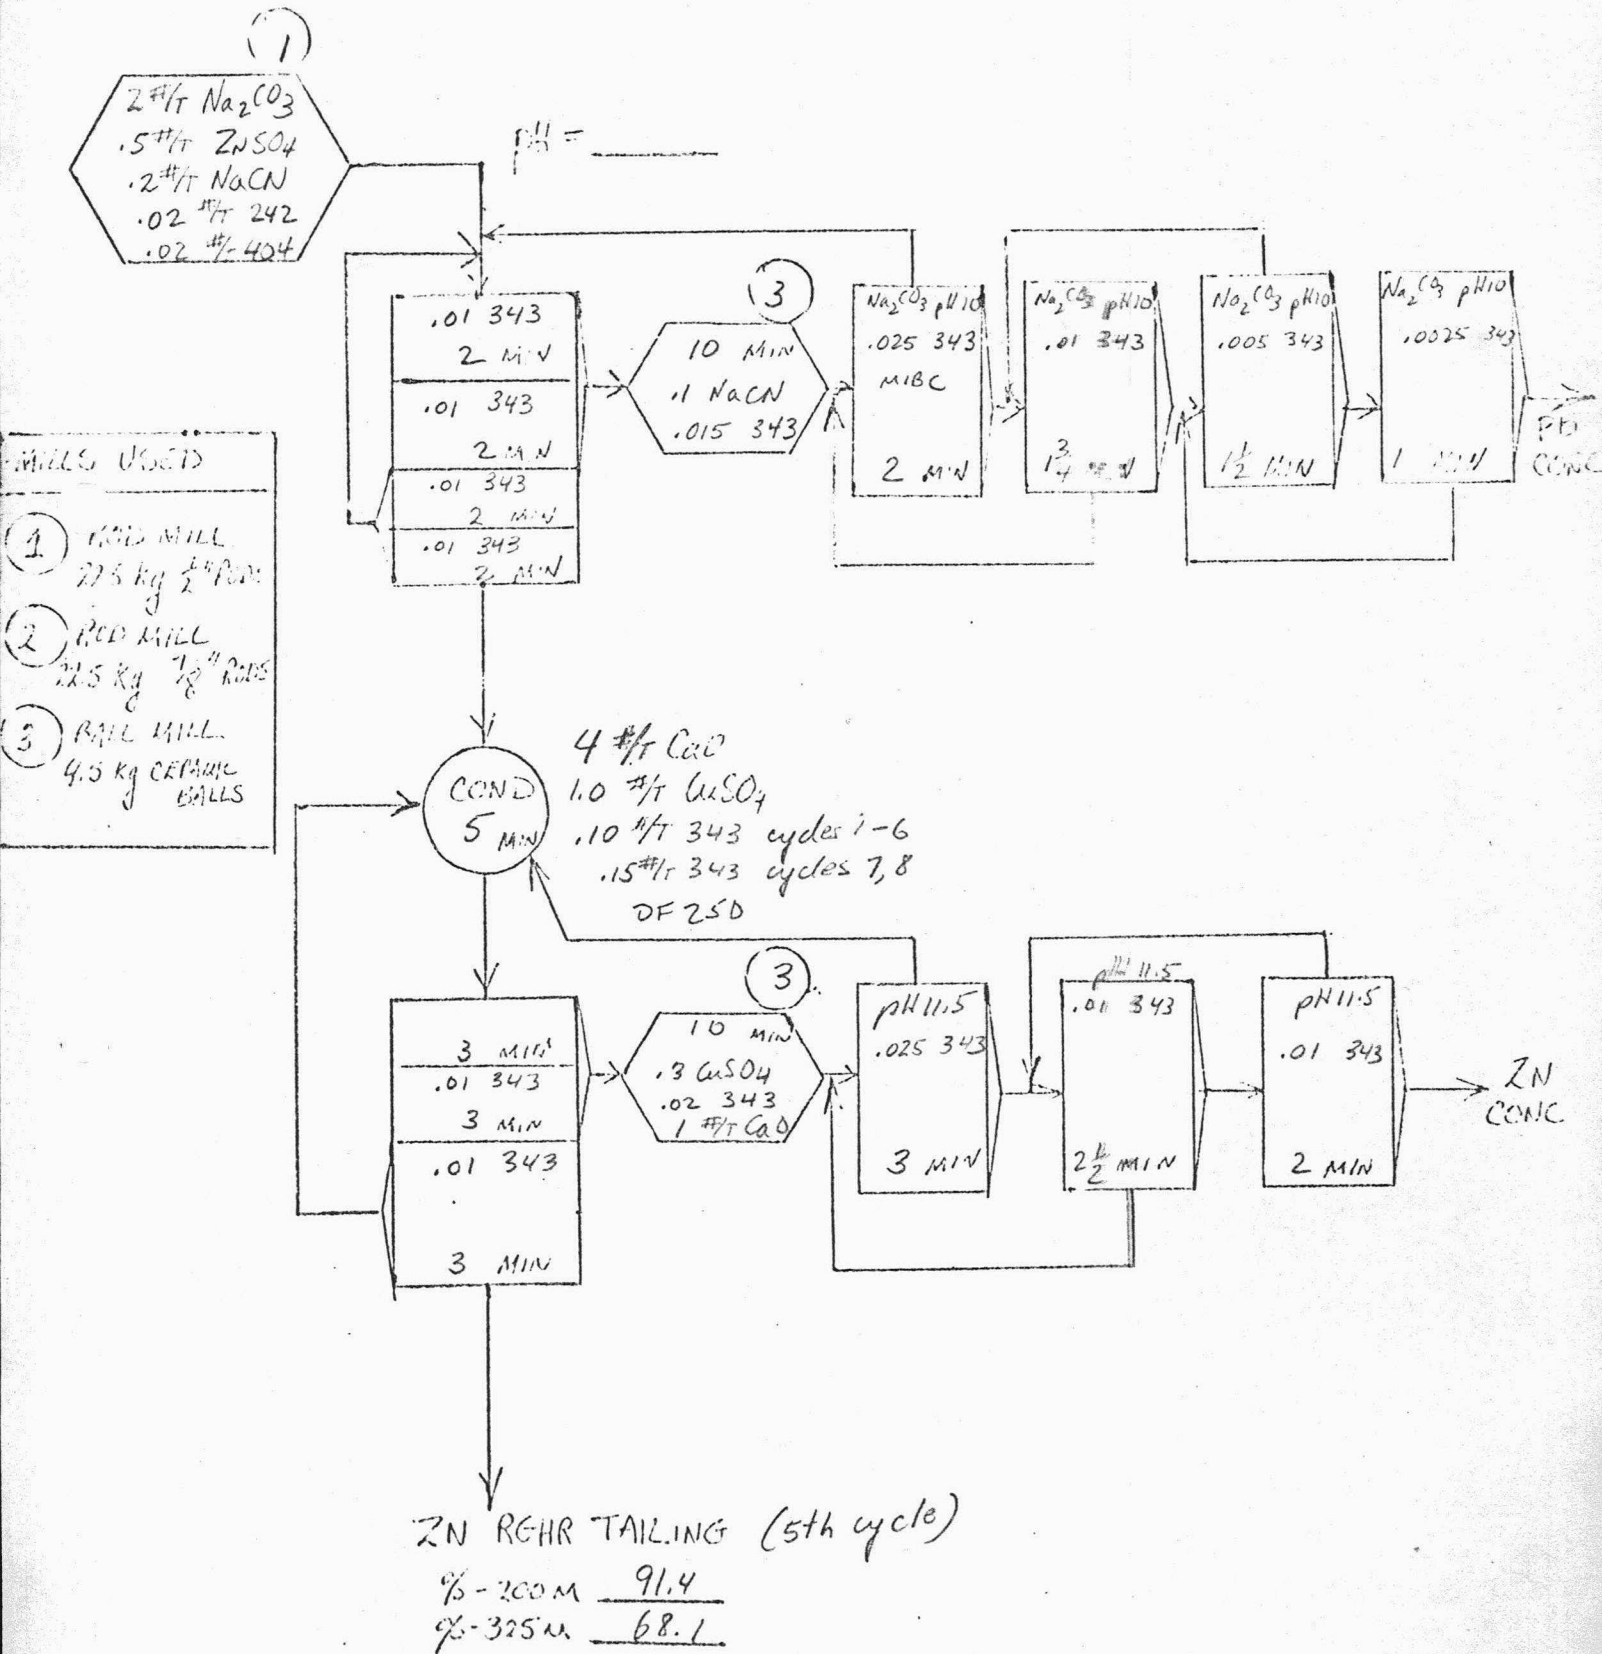 1
2 #/T Na2CO3
.5 #/T ZNSO4
.2 #/T NaCN
.02 #/T 242
.02 #/- 404
pH = ______
.01 343
2 MIN
.01 343
2 MIN
.01 343
2 MIN
.01 343
2 MIN
3
10 MIN
.1 NaCN
.015 343
Na2CO3 pH10
.025 343
MIBC
2 MIN
Na2CO3 pH10
.01 343
1 3/4 MIN
Na2CO3 pH10
.005 343
1 1/2 MIN
Na2CO3 pH10
.0025 343
1 MIN
Pb
CONC
MILLS USED
1 ROD MILL
22.5 kg 1/2" RODS
2 ROD MILL
22.5 kg 7/8" RODS
3 BALL MILL
4.5 kg CERAMIC
BALLS
COND
5 MIN
4 #/T CaO
1.0 #/T CuSO4
.10 #/T 343 cycles 1-6
.15 #/T 343 cycles 7, 8
DF 250
3 MIN
.01 343
3 MIN
.01 343
3 MIN
3
10 MIN
.3 CuSO4
.02 343
1 #/T CaO
pH 11.5
.025 343
3 MIN
pH 11.5
.01 343
2 1/2 MIN
pH 11.5
.01 343
2 MIN
ZN
CONC
ZN ROHR TAILING (5th cycle)
%-200M 91.4
%-325M 68.1